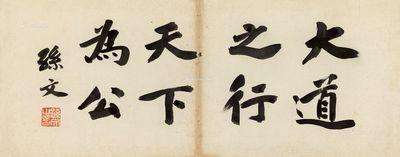 大道
之行
天下
為公
孫文